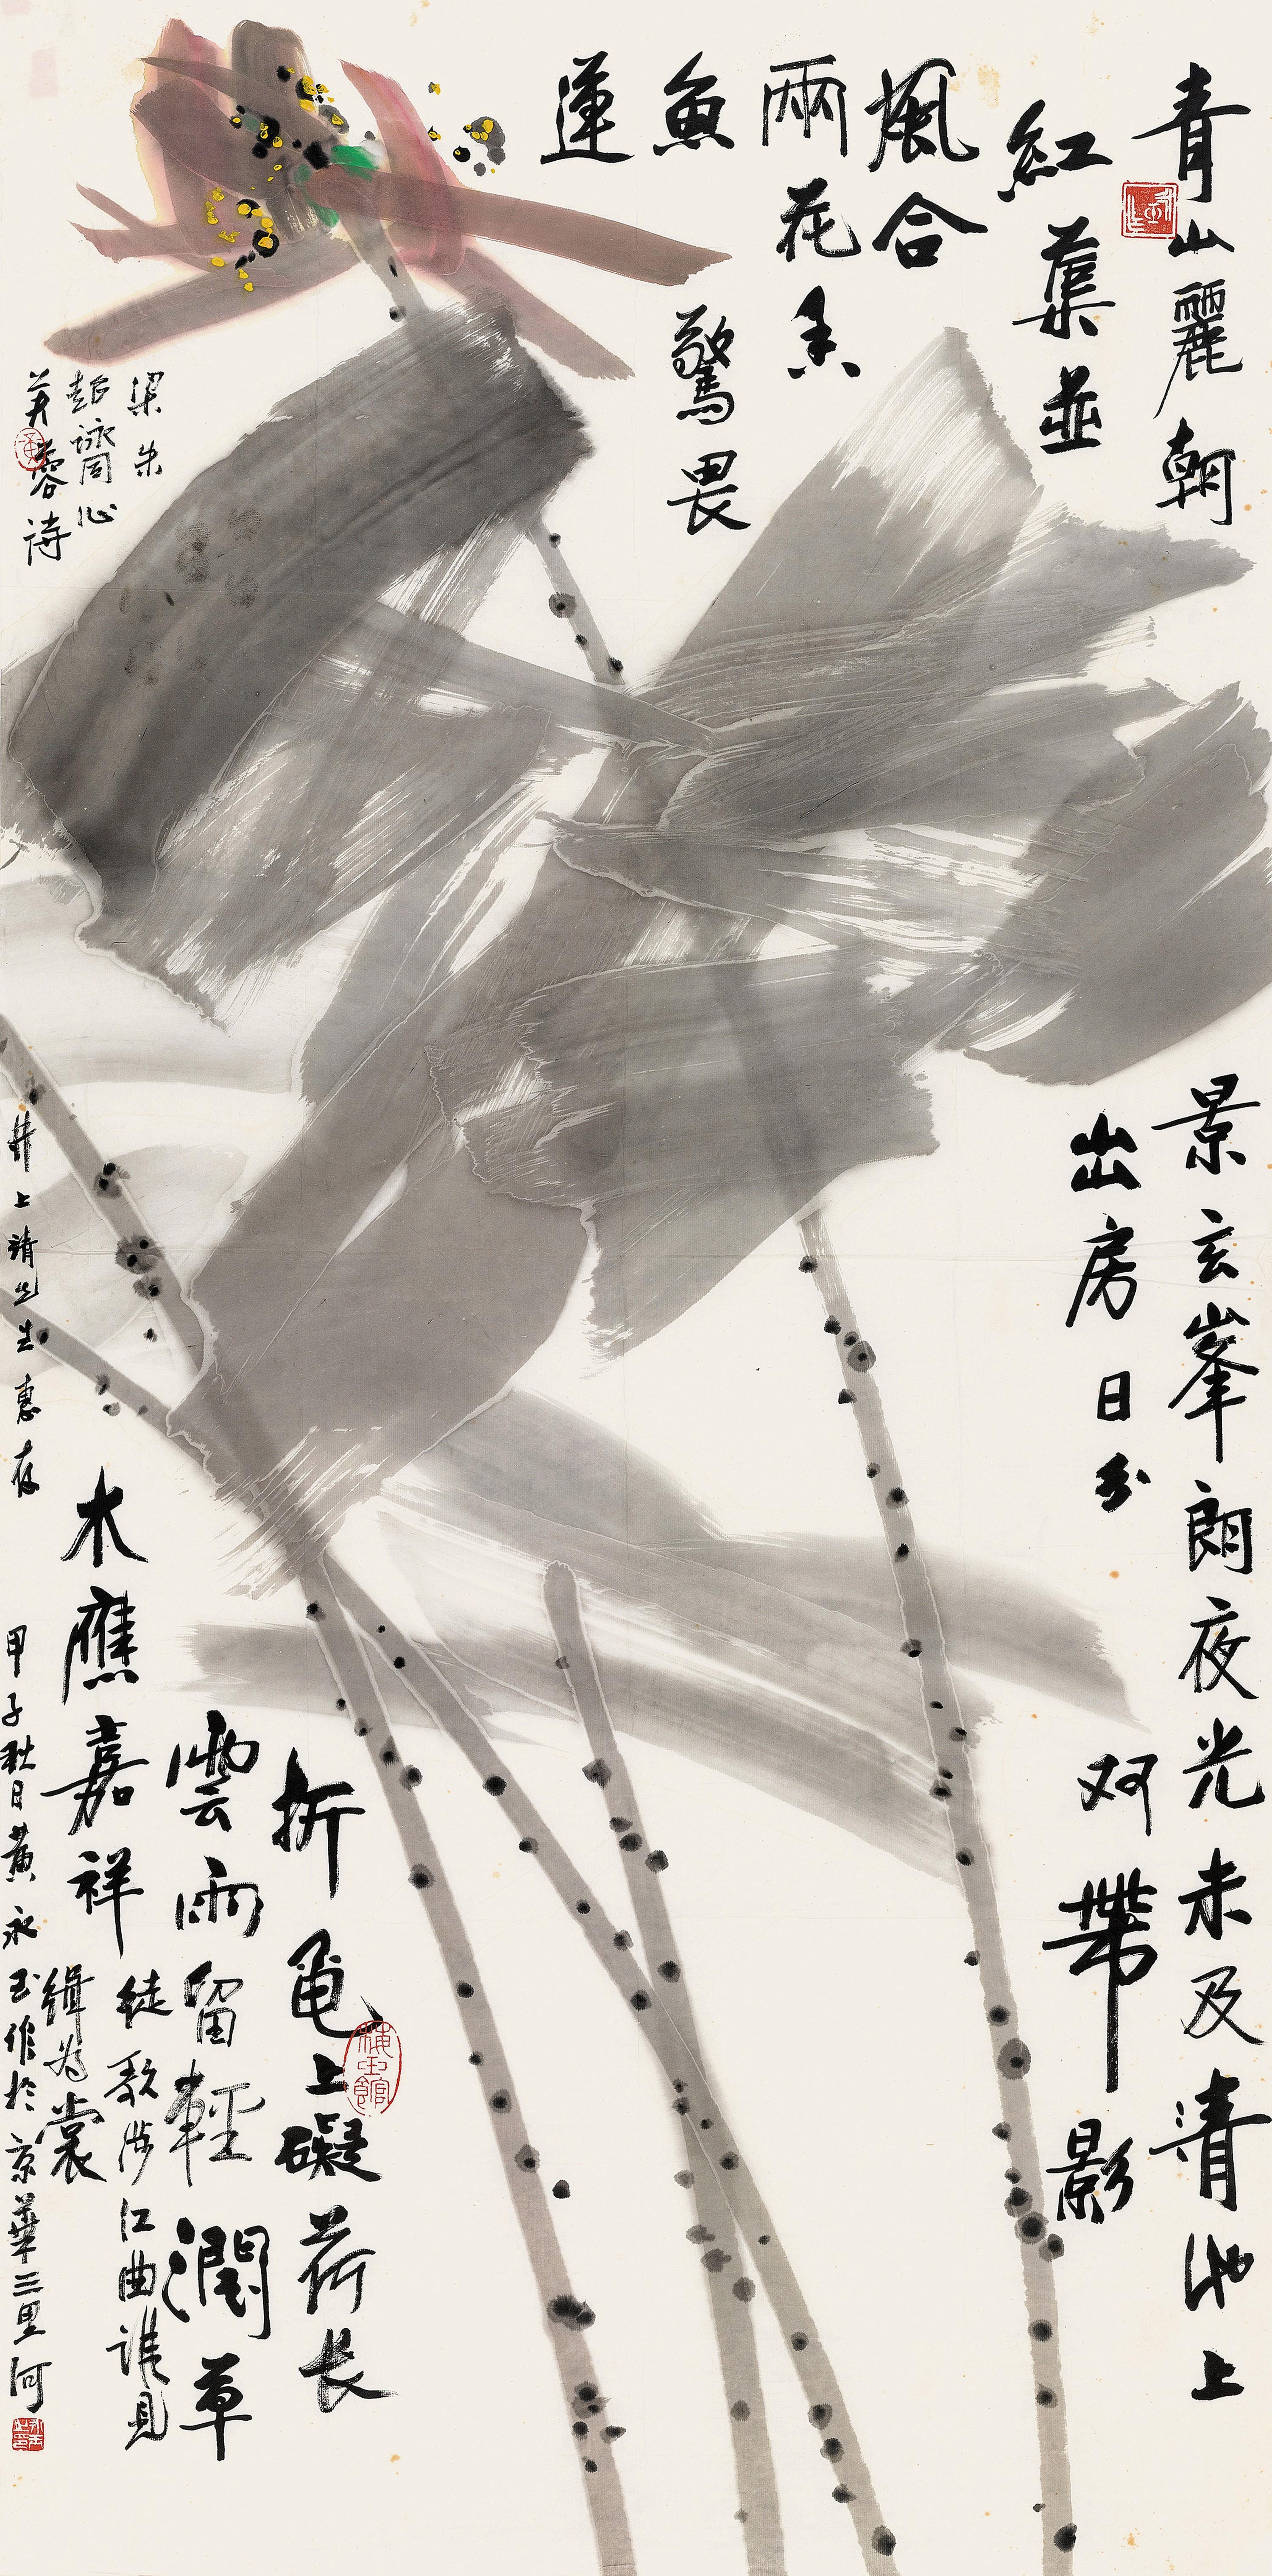 青山麗朝
景玄峯朗夜光未及清池上
紅蕖並
出房日分
双帶影
風合
兩花香
魚驚畏
蓮
折龜上礙荷长
雲雨留輕潤草
木應嘉祥
徒歌涉江曲誰見
緝為裳
梁朱
超詠同心
芙蓉詩
井上靖先生惠存
甲子秋日黄永玉作於京華三里河